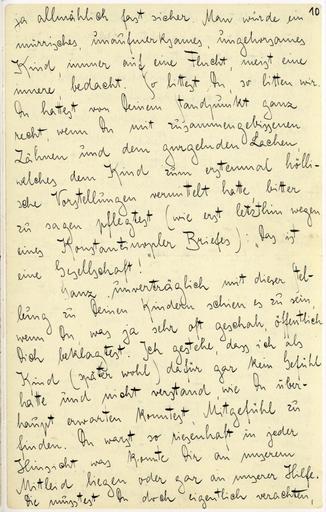 10
ja allmählich fast sicher. Man wurde ein
mürrisches, unaufmerksames, ungehorsames
Kind, immer auf eine Flucht, meist eine
innere, bedacht. So littest Du, so litten wir.
Du hattest von Deinem Standpunkt ganz
recht, wenn Du mit zusammengebissenen
Zähnen und dem gurgelnden Lachen,
welches dem Kind zum erstenmal hölli-
sche Vorstellungen vermittelt hatte bitter
zu sagen pflegtest (wie erst letzthin wegen
eines Konstantinopler Briefes): „Das ist
eine Gesellschaft!"
Ganz unverträglich mit dieser Stel-
lung zu Deinen Kindern schien es zu sein,
wenn Du, was ja sehr oft geschah, öffentlich
Dich beklagtest. Ich gestehe, dass ich als
Kind (später wohl) dafür gar kein Gefühl
hatte und nicht verstand, wie Du über-
haupt erwarten konntest, Mitgefühl zu
finden. Du warst so riesenhaft in jeder
Hinsicht was konnte Dir an unserem
Mitleid liegen oder gar an unserer Hilfe.
Die musstest Du doch eigentlich verachten,